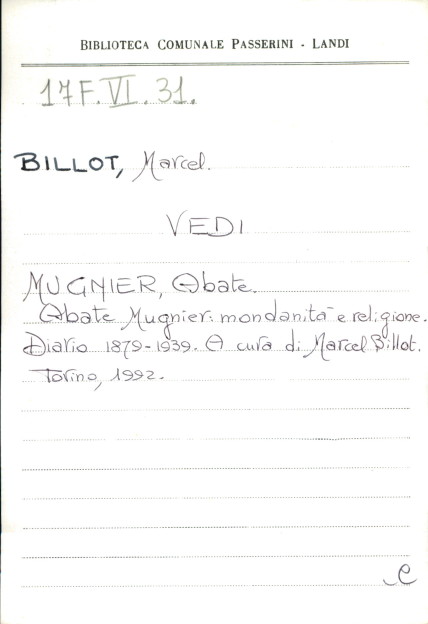 BIBLIOTECA COMUNALE PASSERINI - LANDI
17F.VI.31.
BILLOT, Marcel.
VEDI
MUGNIER, Abate.
Abate Mugnier: mondanità e religione.
Diario 1879-1939. A cura di Marcel Billot.
Torino, 1992.
e